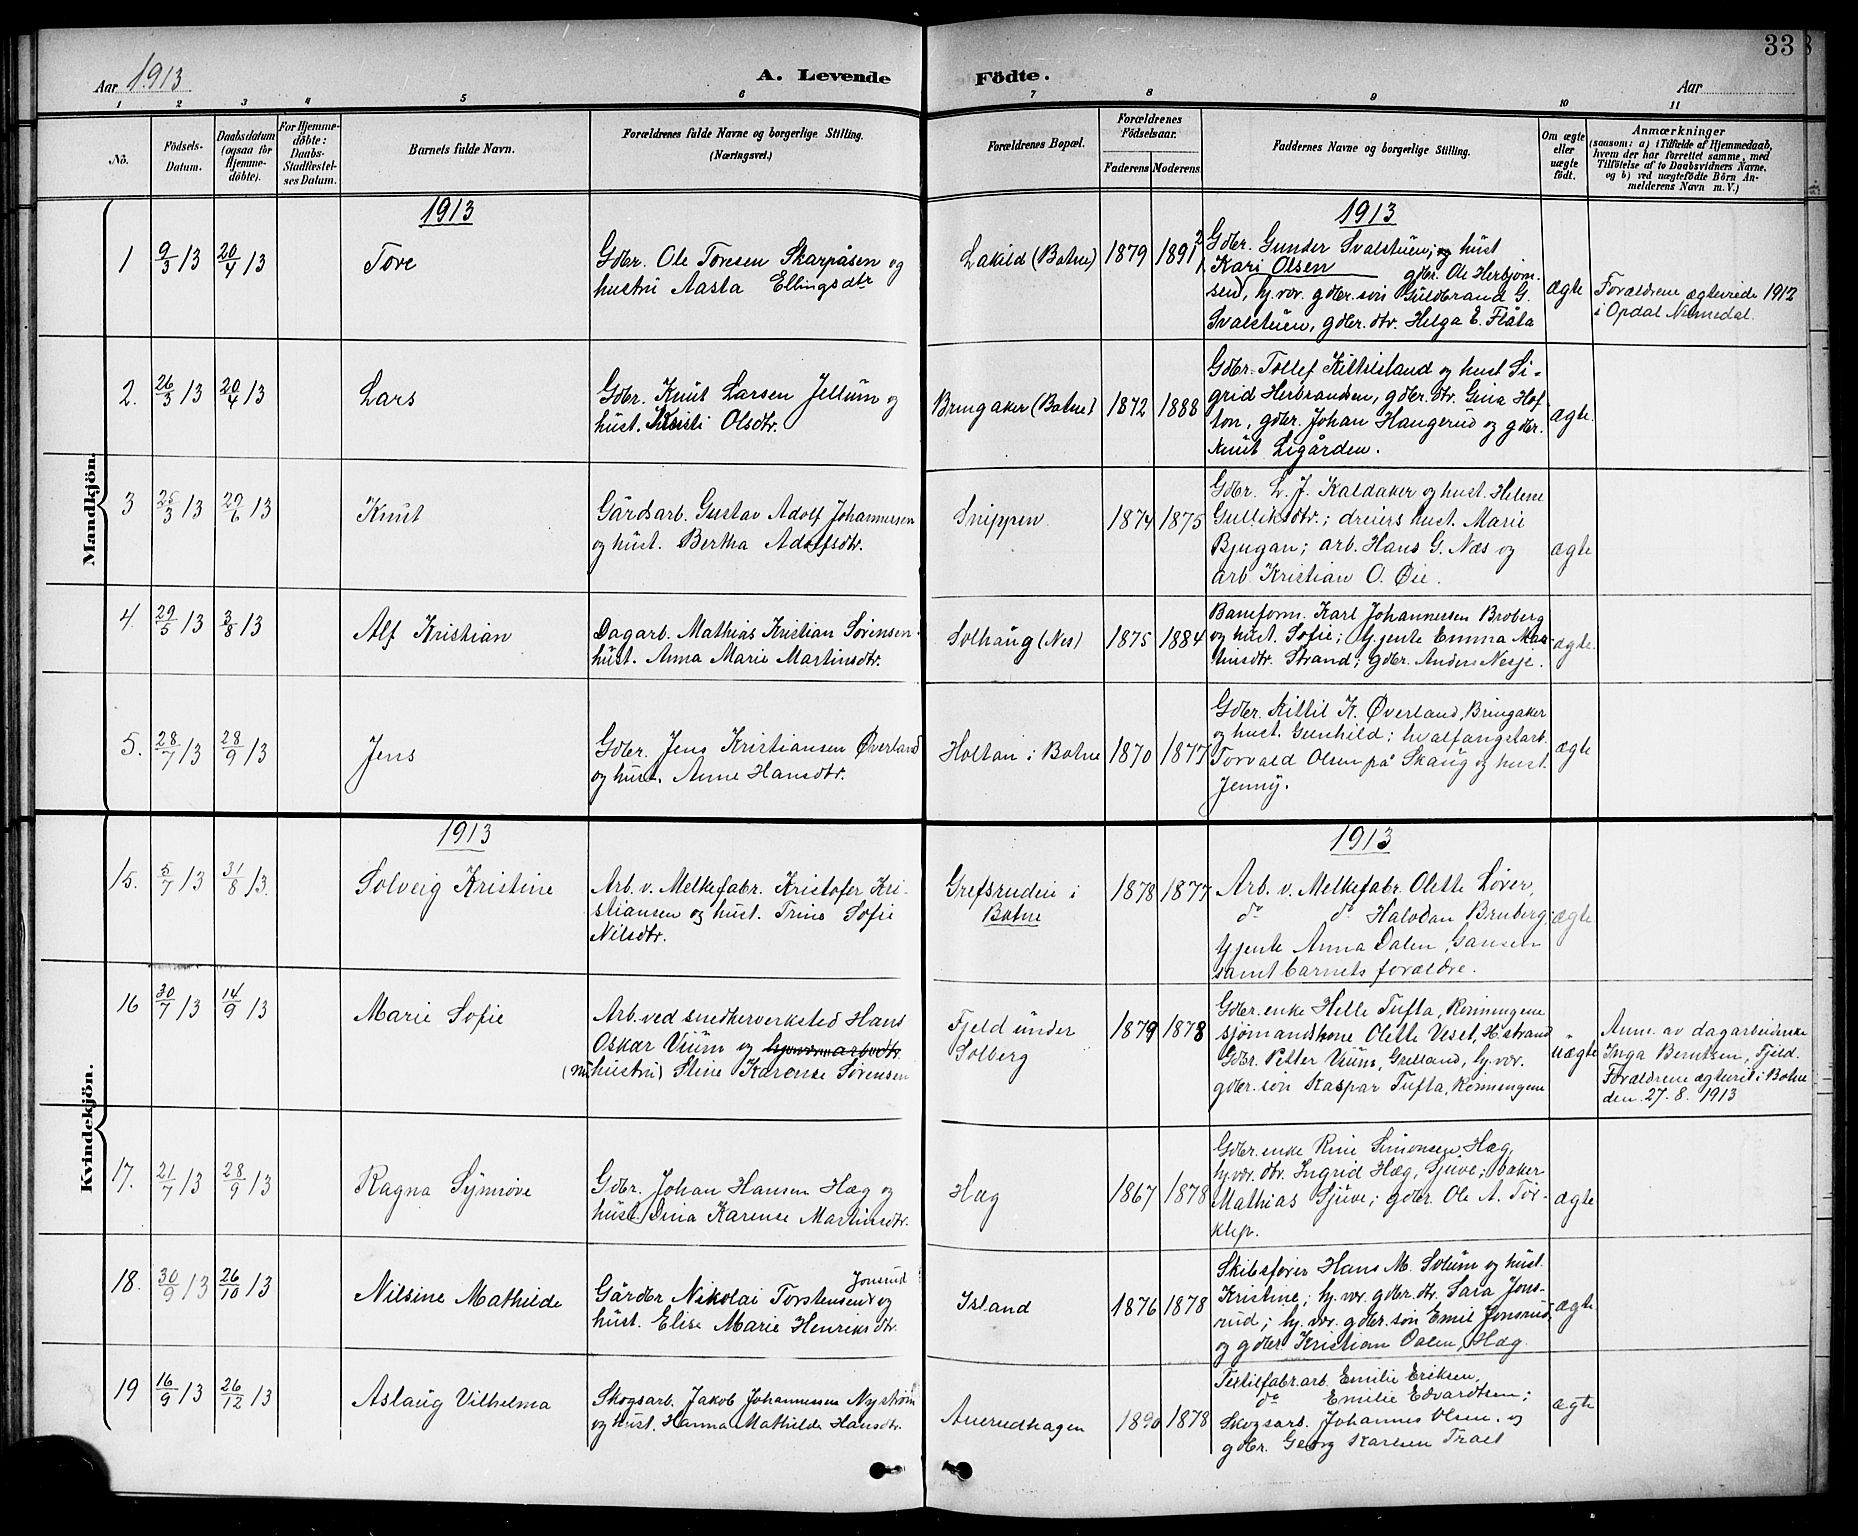 33
Aar 1913
A. Levende
Födte.
Aar
1 2 3 4 5 6 7 8 9 10 11
No.
Födsels-
Datum.
Daabsdatum
(ogsaa för
Hjemme-
döbte).
For Hjemme-
döbte:
Daabs-
Stadfæstel-
ses Datum.
Barnets fulde Navn.
Forældrenes fulde Navne og borgerlige Stilling.
(Næringsvei.)
Forældrenes Bopæl.
Forældrenes
Födselsaar.
Faderens Moderens
Faddernes Navne og borgerlige Stilling.
Om ægte
eller
uægte
födt.
Anmærkninger
(saasom: a) i Tilfælde af Hjemmedaab,
hvem der har forrettet samme, med
Tilföielse af to Daabsvidners Navne,
og b) ved uægtefödte Börn An-
melderens Navn m. V.)
Mandkjön.
1913
1913
1 9/3 13 20/4 13
Tore
Gdbr. Ole Toresen Skarpåsen og
hustru Aasta Ellingsdtr
Lakild (Botne)
1879 1891
Gdbr. Gunder Svalstuen, og hust
Kari Olsen gdbr. Ole Herbjörn-
sen, hj.vær. gdbr. sön Guldbrand G.
Svalstuen, gdbr. dtr. Helga E. Flåta
ægte
Forældrene ægteviede 1912
i Opdal Numedal.
2. 26/3 13 20/4 13
Lars
Gdbr. Knut Larsen Jellum og
hust. Kristi Olsdtr.
Bringaker (Botne)
1872 1888
Gdbr. Tollef Kittilsland og hust Si-
grid Herbrandsen, gdbr. dtr. Gina Hof-
ton, gdbr. Johan Haugerud og gdbr.
Knut Legården.
ægte.
3 25/3 13 29/6 13
Knut
Gårdsarb. Gustav Adolf Johannessen
og hust. Bertha Adolfsdtr.
Snippen
1874 1875
Gdbr. L. J. Kaldaker og hust. Helene
Gulliksdtr.; dreiers hust. Marie
Bjugan; arb. Hans G. Næs og
arb. Kristian O. Øie.
ægte
4. 29/5 13 3/8 13
Alf Kristian
Dagarb. Mathias Kristian Sörensen
hust. Anna Marie Martinsdtr.
Solhaug (Nes)
1875 1884
Baneform. Karl Johannessen Broberg
og hust. Sofie; tj.jente Emma Mar-
tinsdtr. Strand; gdbr. Anders Nesje.
ægte.
5. 28/7 13 28/9 13
Jens
Gdbr. Jens Kristiansen Øverland
og hust. Anne Hansdtr.
Holtan i Botne
1870 1877
Gdbr. Kittil K. Øverland, Bringaker
og hust. Gunhild; hvalfangstarb.
Torvald Olsen på Skaug og hust.
Jenny.
ægte
Kvindekjön.
1913
1913
15. 5/7 13 31/8 13.
Solveig Kristine
Arb. v. Melkefabr. Kristofer Kri-
stiansen og hust. Trine Sofie
Nilsdtr.
Grefsrudeie i
Botne
1878 1877
Arb. v. Melkefabr. Olette Löver,
do do Halvdan Bruberg;
tj.jente Anna Dalen, Gansen
samt barnets forældre.
ægte
16 30/7 13 14/9 13
Marie Sofie
Arb. ved snedkerverksted Hans
Oskar Vium og
(nu hustru) Stine Karense Sörensen
Fjeld under
Solberg
1879 1878
Gdbr. enke Helle Tufta, Rönningene
sjömandskone Olette Veset, H.strand
Gdbr. Petter Viums, Grelland, hj.vær.
gdbr. sön Kaspar Tufta, Rönningene
uægte
Anm. av dagarbeiderske
Inga Berntsen, Fjeld.
Forældrene ægteviet i Botne
den 27. 8. 1913
17. 21/7 13 28/9 13
Ragna Synnöve
Gdbr. Johan Hansen Hæg og
hust. Dina Karense Martinsdtr.
Hæg
1867 1878
Gdbr. enke Rine Simonsen Hæg,
hj.vær. dtr. Ingrid Hæg, Sjuve; baker
Mathias Sjuve; gdbr. Ole A. Tor-
klep.
ægte
18. 30/9 13 26/10 13
Nilsine Mathilde
Jonsrud
Gårdbr Nikolai Torstensen og
hust. Elise Marie Henriksdtr.
Island
1876 1878
Skibsförer Hans M. Solum og hust.
Kristine; hj. vær. gdbr. dtr. Sara Jons-
rud; hj. vær. gdbr. sön Emil Jonsrud
og gdbr. Kristian Dalen, Hæg.
ægte
19 16/9 13 26/12 13
Aslaug Vilhelma
Skogsarb. Jakob Johannessen Nyström
og hust. Hanna Mathilde Hansdtr.
Auerudhagen
1890 1878
Textilfabr.arb. Emilie Eriksen,
do Emilie Edvardtsen;
Skogsarb. Johannes Olsen og
gdbr. Georg Karlsen Traet
ægte